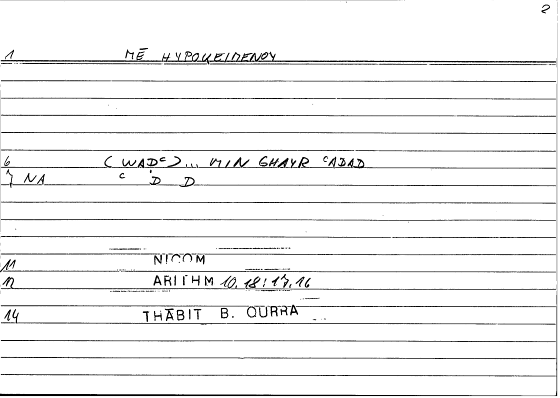 2
1 MĒ HYPOKEIMENOY
6 (WADᶜ)... MIN GHAYR ᶜADAD
7 NA ᶜ D D
11 NICOM
12 ARITHM 10,18; 17,16
14 THĀBIT B. QURRA